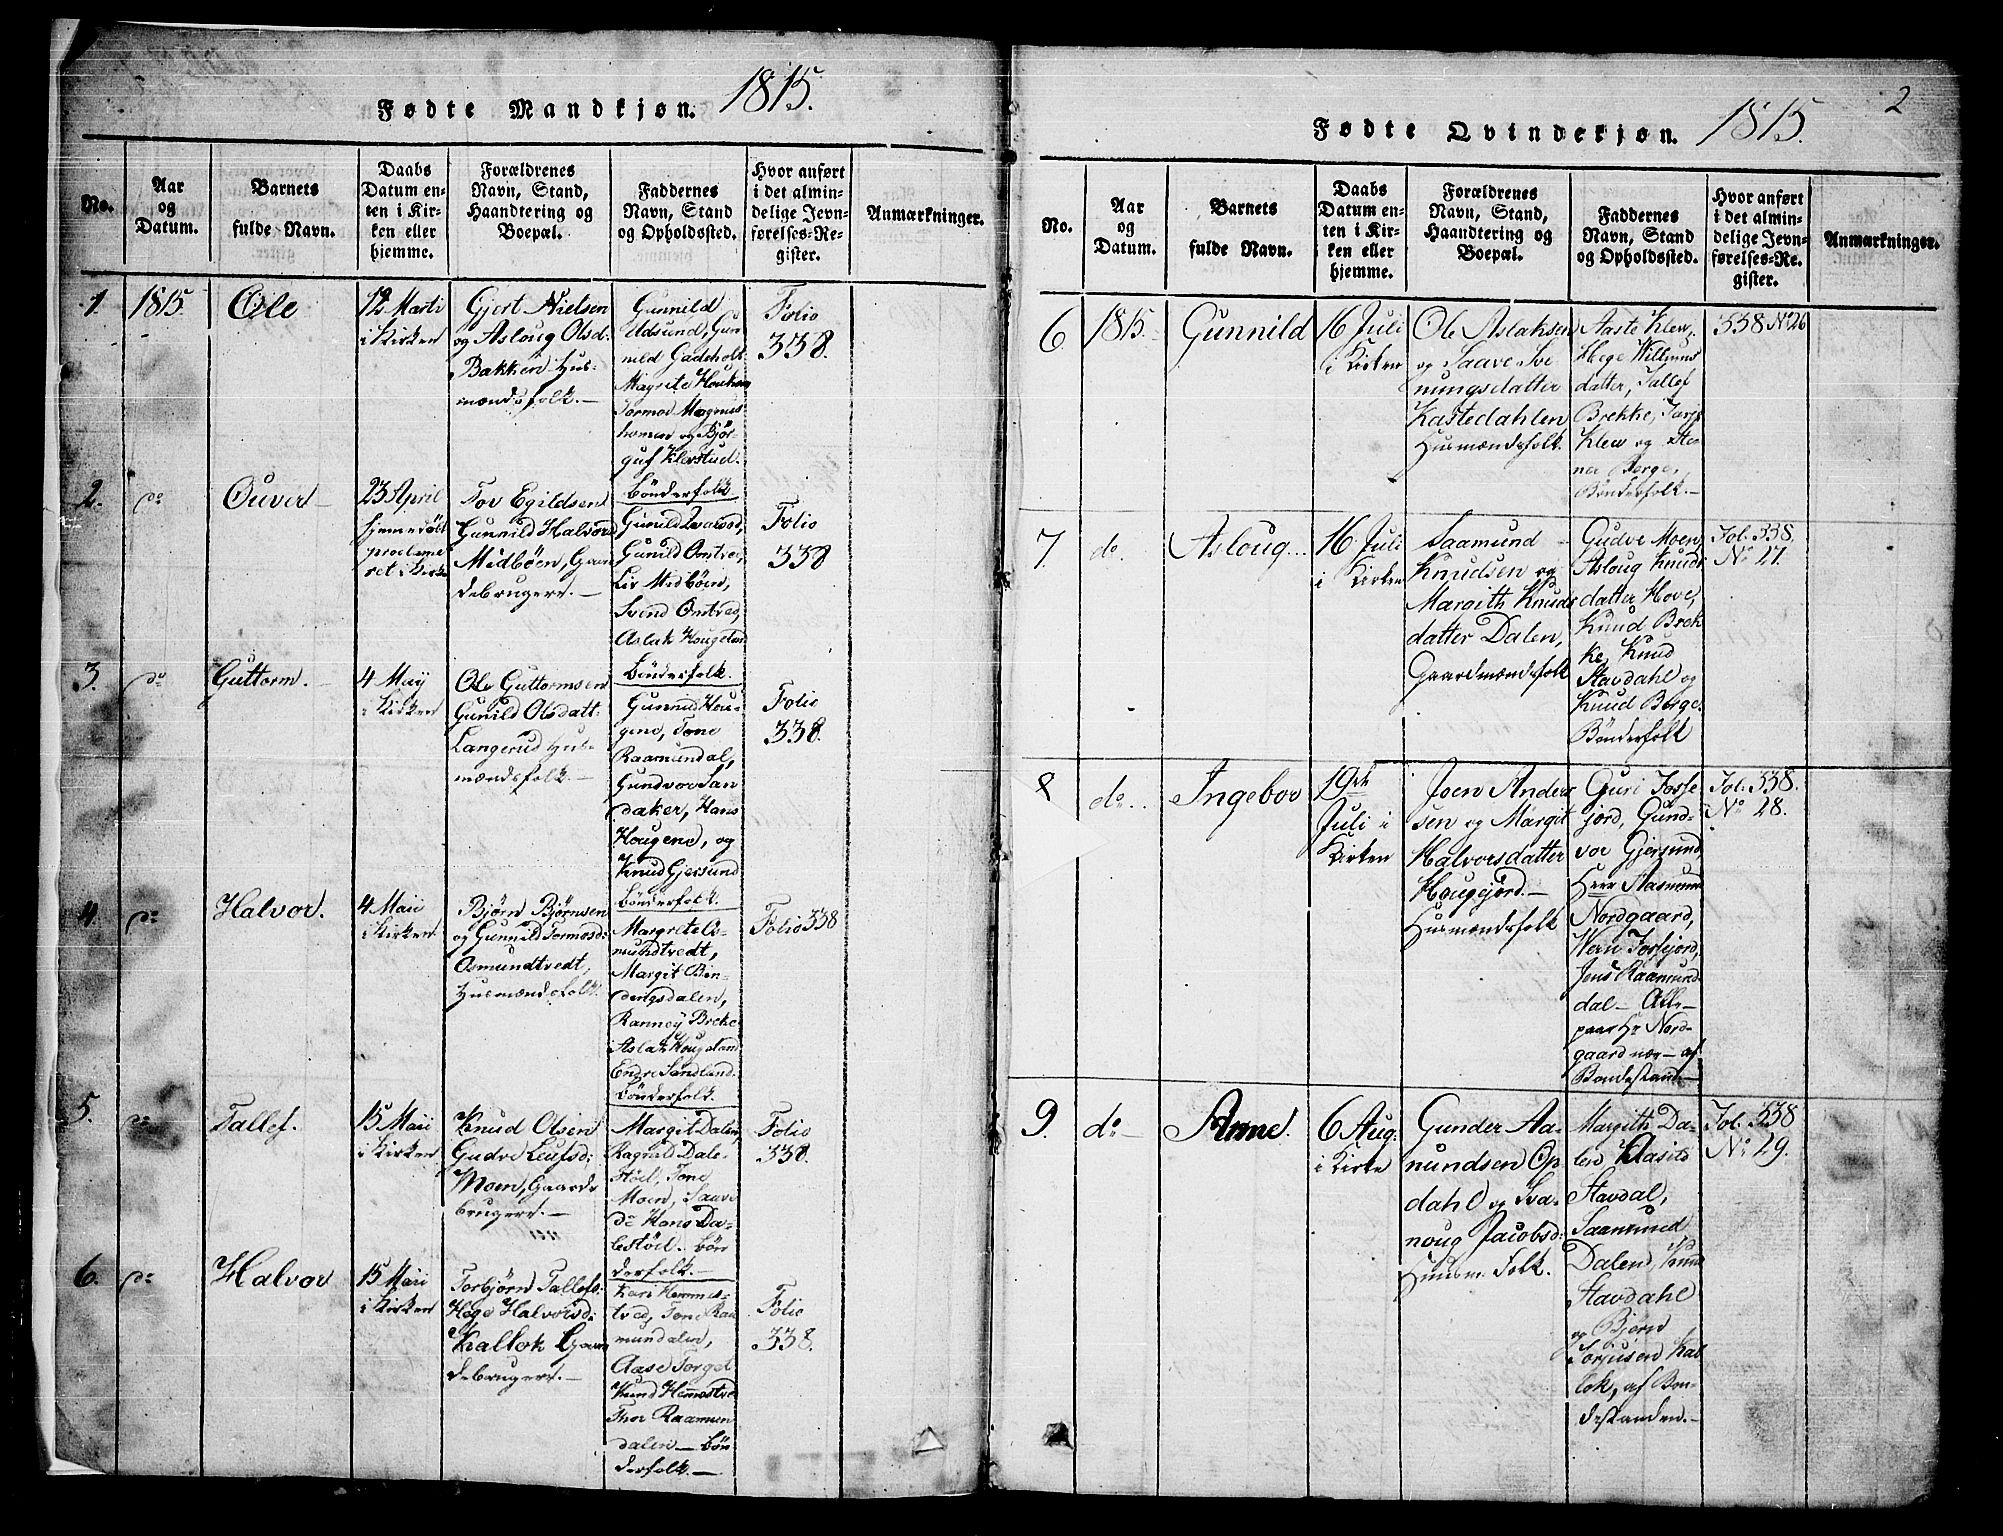 Fødte Mandkjøn. 1815.
No.
Aar
og
Datum.
Barnets
fulde Navn.
Daabs
Datum en-
ten i Kir-
ken eller
hjemme.
Forældrenes
Navn, Stand,
Haandtering og
Boepæl.
Faddernes
Navn, Stand
og Opholdssted.
Hvor anført
i det almin-
delige Jevn-
førelses-Re-
gister.
Anmærkninger.
1.
1815.
Ole
12 Marti
i Kirken
Gjert Nielsen
og Asloug Olsd:
Bakken Hus-
mændsfolk.-
Gunnild
Udsund, Gun
nild Gadeholt
Margrete Houkom
Tormod Magnus
homen og Bjør-
guf Klevstud.
Bønderfolk
Folio
338.
2.
do
Ouver
23 April
hjemmedøbt
proclame
ret i Kirke
Tov Egildsen
Gunnild Halvord
Midbøen, Gaar
debrugere.-
Gunild
Gunild Omtved,
Liv Midbøen,
Svend Omtved,
Aslak Hougeland
Bønderfolk.
Folio
338
3.
do
Guttorm.
4 May
i Kirken
Ole Guttormsen
Gunild Olsdatt:
Langerud Hus-
mændsfolk.-
Gunnild Hou-
gene, Tone
Raamundal,
Gundvor San
daker, Hans
Hougene, og
Knud Gjersund
bønderfolk.
Folio
338.
4.
do
Halvor.
4 Maii
i Kirken
Bjørn Bjørnsen
og Gunnild Tormosd:
Osmundtvedt,
Husmændsfolk.
Margrete Os-
mundtvedt,
Margit Bin-
dingsdalen,
Ranney Breke
Aslak Hougeland
Endre Sandland.
bønderfolk.
Folio 338
5.
do
Tallef.
15 Maii
i Kirken
Knud Olsen
Gudve Leufsd:
Moen, Gaarde
brugere.-
Margit Dalen,
Ragnild Dale-
støil, Tone
Moen, Saave
do Hans Da-
lestøil. bøn
derfolk.-
Folio
338.
6.
do
Halvor
15 Maii
i Kirken
Torbjørn Tallefs:
Hege Halvorsd:
Kallok Gaar
debrugere.-
Kari Hemmes-
tved, Tone Raa
mundalen,
Aase Torget
Knud Hemmestved
Thor Raamun
dalen - bøn
derfolk.-
Folio
338.
Fødte Qvindekjøn. 1815.
2
No.
Aar
og
Datum.
Barnets
fulde Navn.
Daabs
Datum en-
ten i Kir-
ken eller
hjemme.
Forældrenes
Navn, Stand,
Haandtering og
Boepæl.
Faddernes
Navn, Stand
og Opholdssted.
Hvor anført
i det almin-
delige Jevn-
førelses-Re-
gister.
Anmærkninger.
6.
1815.
Gunnild
16 Juli
i Kirken
Ole Aslaksen
og Saave Sve
nungsdatter
Kastedahlen
Husmændsfolk.
Aaste Klev,
Hege Willums
datter, Tallef
Brekke, Tarje
Klev og Ste-
ner Borge,
Bønderfolk.-
338 No 26
7.
do.
Asloug..
16 Juli
i Kirken
Saamund
Knudsen og
Margith Knuds
datter Dalen,
Gaardmændsfolk
Gudve Moen,
Asloug Knuds
datter Hove,
Knud Brek
ke, Knud
Stavdahl og
Knud Borge.
Bønderfolk
Fol. 338.
No 27.
8
do..
Ingebor
19de
Juli i
Kirken
Joen Anders
sen og Margit
Halvorsdatter
Hougejord.-
Husmændsfolk
Guri Forse
jord, Gund-
vor Gjersund,
Herr Aasmun
Nordgaard,
Wern Forsejord,
Jens Raamund
dal - Alle
paar Hr Nord-
gaard nær - af
Bondestand-
Fol. 338.
No 28.
9.
do-
Anne.
6 Aug:
i Kirke
Gunder Aa-
nundsen Op-
dahl og Sva-
noug Jacobsd:
Huusm: Folk.
Margith Da-
len, Aasild
Stavdal,
Saamund
Dalen, Knud
Stavdahl
og Bjørn
Torjusen Kal
lok, af Bon-
destanden.-
Fol. 338
No 29.